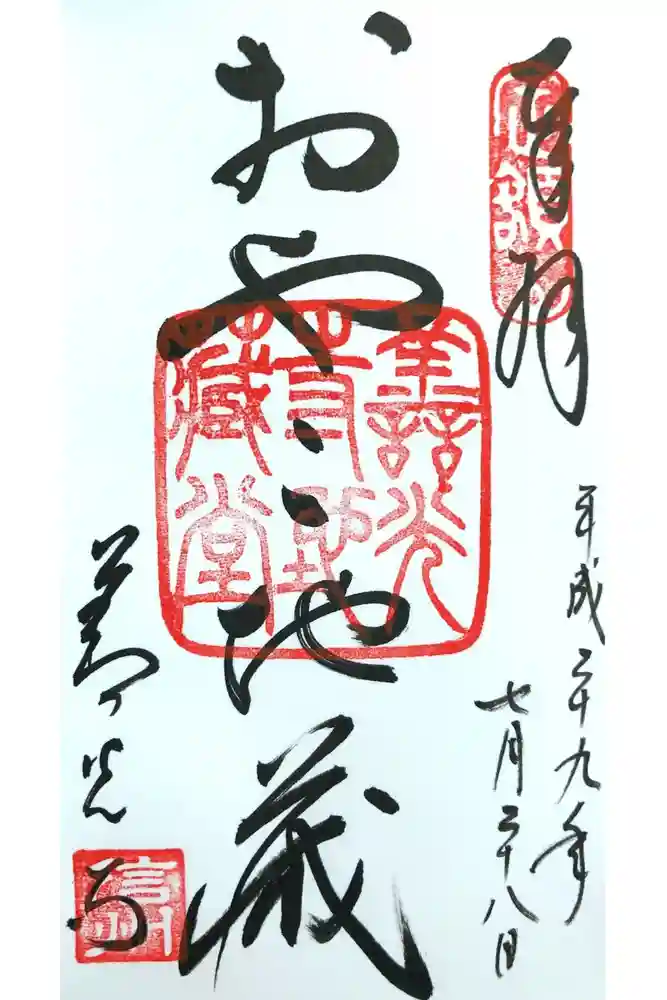 奉拝
定額山
平成二十九年
七月二十八日
おやこ地蔵
善光
寺地
蔵堂
善光寺
信州